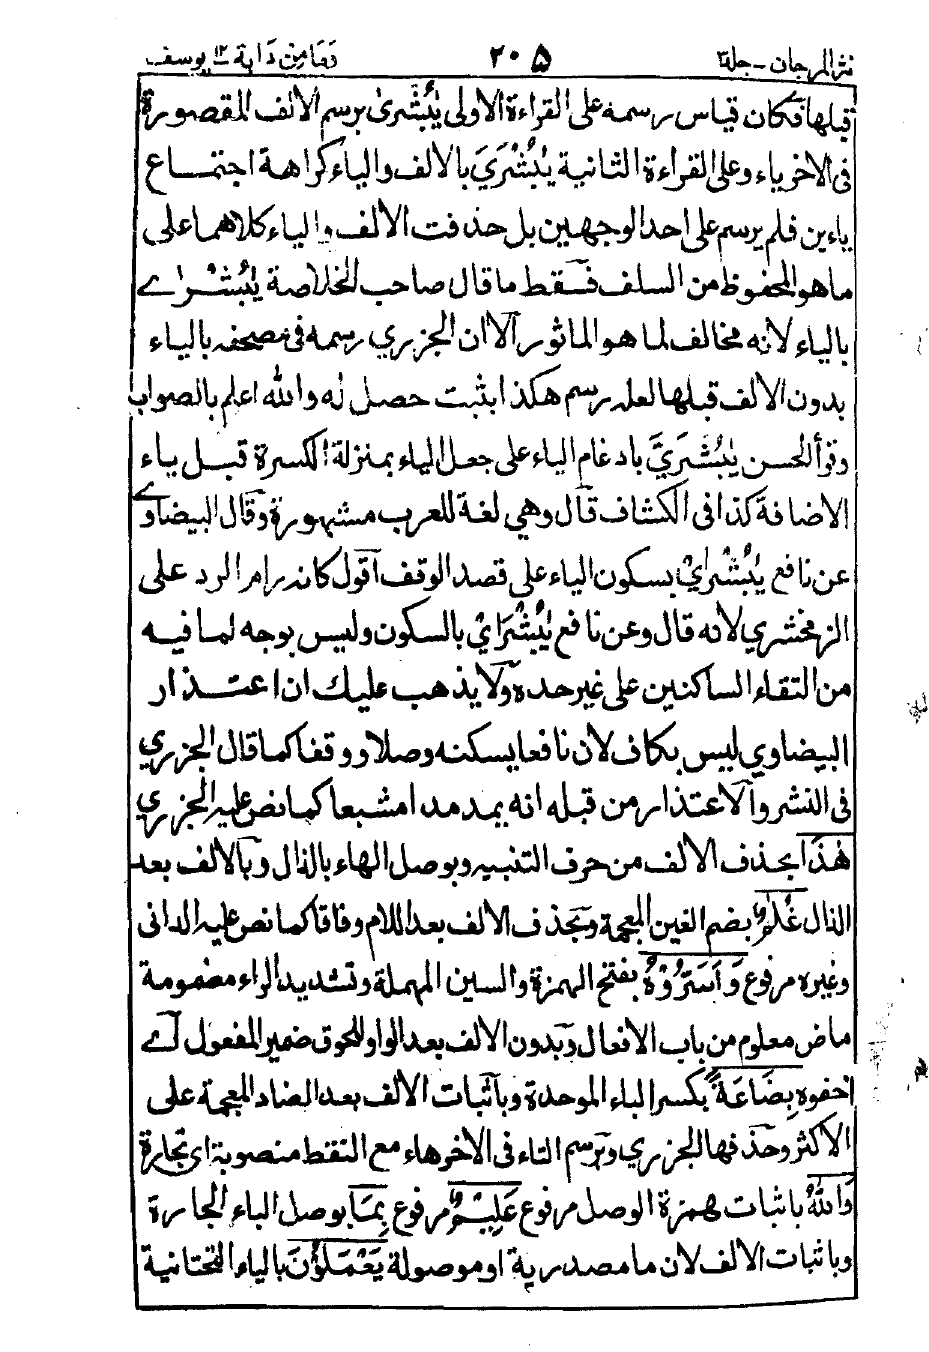 نثر المرجان - جلد ٣ ٢٠٥ وما من دابة ١٢ يوسف
قبلها فكان قياس رسمه على القراءة الاولى يٰبُشْرىٰ برسم الالف المقصورة
فى الاخر ياء وعلى القراءة الثانية يٰبُشْرَيَ بالالف والياء كراهة اجتماع
ياءين فلم يرسم على احد الوجهين بل حذفت الالف والياء كلاهما على
ما هو المحفوظ من السلف فسقط ما قال صاحب الخلاصة يٰبُشْرٰے
بالياء لانه مخالف لما هو الماثور آلا ان الجزري رسمه فى مصحفه بالياء
بدون الالف قبلها لعله رسم هكذا بثبت حصل له والله اعلم بالصواب
وقرأ الحسن يٰبُشْرَيَّ بادغام الياء على جعل الياء بمنزلة الكسرة قبل ياء
الاضافة كذا فى الكشاف قال وهي لغة للعرب مشهورة وقال البيضاوے
عن نافع يٰبُشْرَايْ بسكون الياء على قصد الوقف آقول كانه رام الرد على
الزمخشري لانه قال وعن نافع يٰبُشْرَايْ بالسكون وليس بوجه لما فيه
من التقاء الساكنين على غير حده ولا يذهب عليك ان اعتذار
البيضاوي ليس بكاف لان نافعا يسكنه وصلا ووقفا كما قال الجزري
فى النشر وآلاعتذار من قبله انه يمد مدا مشبعا كما نص عليه الجزري
هٰذَا بحذف الالف من حرف التنبيه وبوصل الهاء بالذال وبالالف بعد
الذال غُلٰمٌ بضم الغين المعجمة وبحذف الالف بعد اللام وفاقا كما نص عليه الدانى
وغيره مرفوع وَاَسَرُّوْهُ بفتح الهمزة والسين المهملة وتشديد الراء مضمومة
ماض معلوم من باب الافعال وبدون الالف بعد الواو للحوق ضمير المفعول آے
اخفوه بِضَاعَةً بكسر الباء الموحدة وبآثبات الالف بعد الضاد المعجمة على
الاكثر وحذفها الجزري وبرسم التاء فى الاخر هاء مع النقط منصوبة اى تجارة
وَاللهُ باثبات همزة الوصل مرفوع عَلِيْمٌ مرفوع بِمَا بوصل الباء الجارة
وباثبات الالف لان ما مصدرية او موصولة يَعْمَلُوْنَ بالياء التحتانية